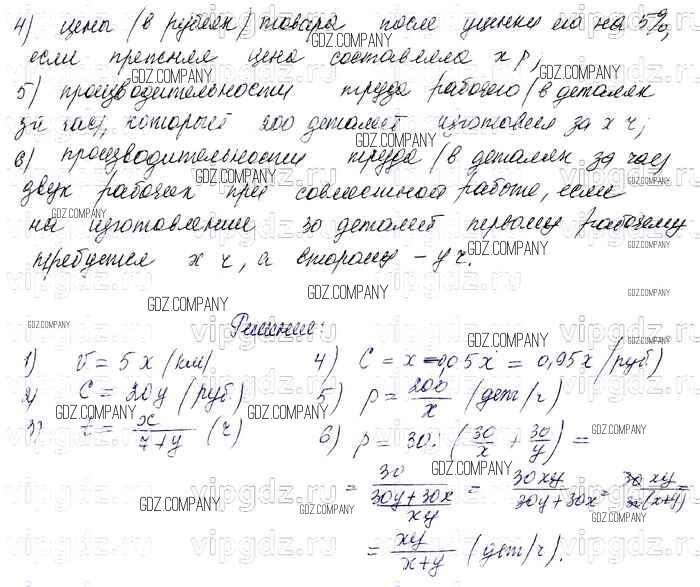 4) цены (в рублях) товара после уценки его на 5%,
если прежняя цена составляла x р;
5) производительности труда рабочего (в деталях
за час), который 200 деталей изготовил за x ч;
6) производительности труда (в деталях за час)
двух рабочих при совместной работе, если
на изготовление 30 деталей первому рабочему
требуется x ч, а второму – y ч.
Решение:
1) v = 5x (км) 4) C = x – 0,05x = 0,95x (руб)
2) C = 20y (руб) 5) p = 200/x (дет/ч)
3) t = x/(7+y) (ч) 6) p = 30: (30/x + 30/y) =
= 30/((30y+30x)/xy) = 30xy/(30y+30x) = 30xy/(30(x+y)) =
= xy/(x+y) (дет/ч).
GDZ.COMPANY
vipgdz.ru